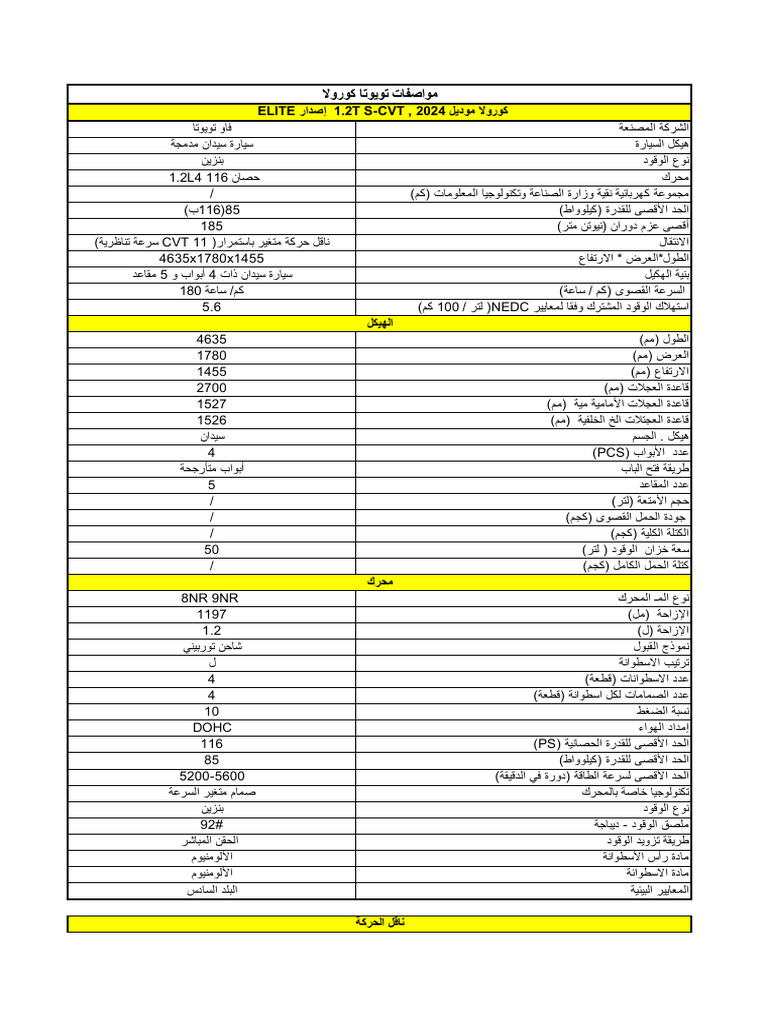 مواصفات تويوتا كورولا
كورولا موديل 2024 , 1.2T S-CVT إصدار ELITE
الشركة المصنعة فاو تويوتا
هيكل السيارة سيارة سيدان مدمجة
نوع الوقود بنزين
محرك 1.2L4 116 حصان
مجموعة كهربائية نقية وزارة الصناعة وتكنولوجيا المعلومات (كم) /
الحد الأقصى للقدرة (كيلوواط) 85(116ب)
أقصى عزم دوران (نيوتن متر) 185
الانتقال ناقل حركة متغير باستمرار( CVT 11 سرعة تناظرية)
الطول*العرض * الارتفاع 4635x1780x1455
بنية الهكيل سيارة سيدان ذات 4 أبواب و 5 مقاعد
السرعة القصوى (كم / ساعة) 180 كم/ ساعة
استهلاك الوقود المشترك وفقا لمعايير NEDC( لتر / 100 كم) 5.6
الهيكل
الطول (مم) 4635
العرض (مم) 1780
الارتفاع (مم) 1455
قاعدة العجلات (مم) 2700
قاعدة العجلات الأمامية مية (مم) 1527
قاعدة العجتلات الخ الخلفية (مم) 1526
هيكل . الجسم سيدان
عدد الأبواب (PCS) 4
طريقة فتح الباب أبواب متأرجحة
عدد المقاعد 5
حجم الأمتعة (لتر) /
جودة الحمل القصوى (كجم) /
الكتلة الكلية (كجم) /
سعة خزان الوقود ( لتر) 50
كتلة الحمل الكامل (كجم) /
محرك
نوع المـ المحرك 8NR 9NR
الإزاحة (مل) 1197
الإزاحة (ل) 1.2
نموذج القبول شاحن توربيني
ترتيب الاسطوانة ل
عدد الاسطوانات (قطعة) 4
عدد الصمامات لكل اسطوانة (قطعة) 4
نسبة الضغط 10
إمداد الهواء DOHC
الحد الأقصى للقدرة الحصانية (PS) 116
الحد الأقصى للقدرة (كيلوواط) 85
الحد الأقصى لسرعة الطاقة (دورة في الدقيقة) 5200-5600
تكنولوجيا خاصة بالمحرك صمام متغير السرعة
نوع الوقود بنزين
ملصق الوقود - ديباجة 92#
طريقة تزويد الوقود الحقن المباشر
مادة رأس الأسطوانة الألومنيوم
مادة الاسطوانة الألومنيوم
المعايير البينية البلد السادس
ناقل الحركة